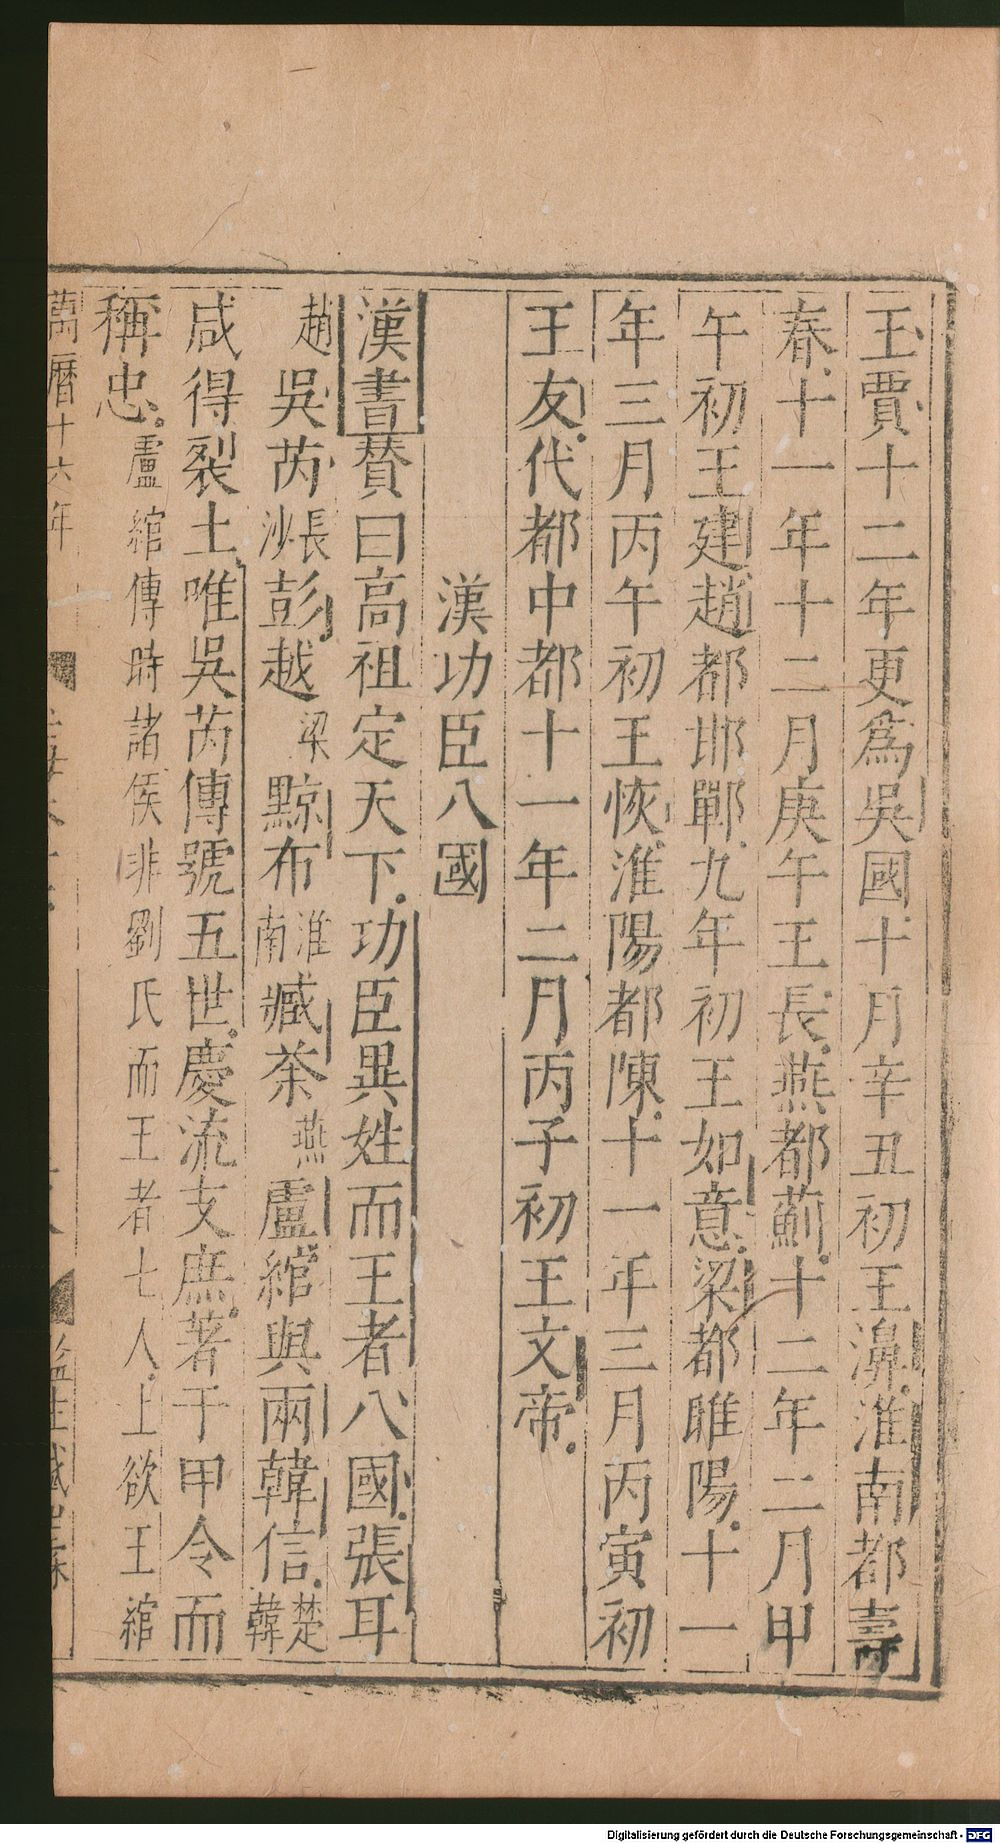 王賈十二年更爲吳國十月辛丑初王濞淮南都壽
春十一年十二月庚午王長燕都薊十二年二月甲
午初王建趙都邯鄲九年初王如意梁都睢陽十一
年三月丙午初王恢淮陽都陳十一年三月丙寅初
王友代都中都十一年二月丙子初王文帝
漢功臣八國
漢書賛曰高祖定天下功臣異姓而王者八國張耳
趙吳芮長沙彭越梁黥布淮南臧荼燕盧綰與兩韓信楚韓
咸得裂土唯吳芮傳號五世慶流支庶著于甲令而
稱忠盧綰傳時諸侯非劉氏而王者七人上欲王綰
萬曆十六年
Digitalisierung gefördert durch die Deutsche Forschungsgemeinschaft - DFG